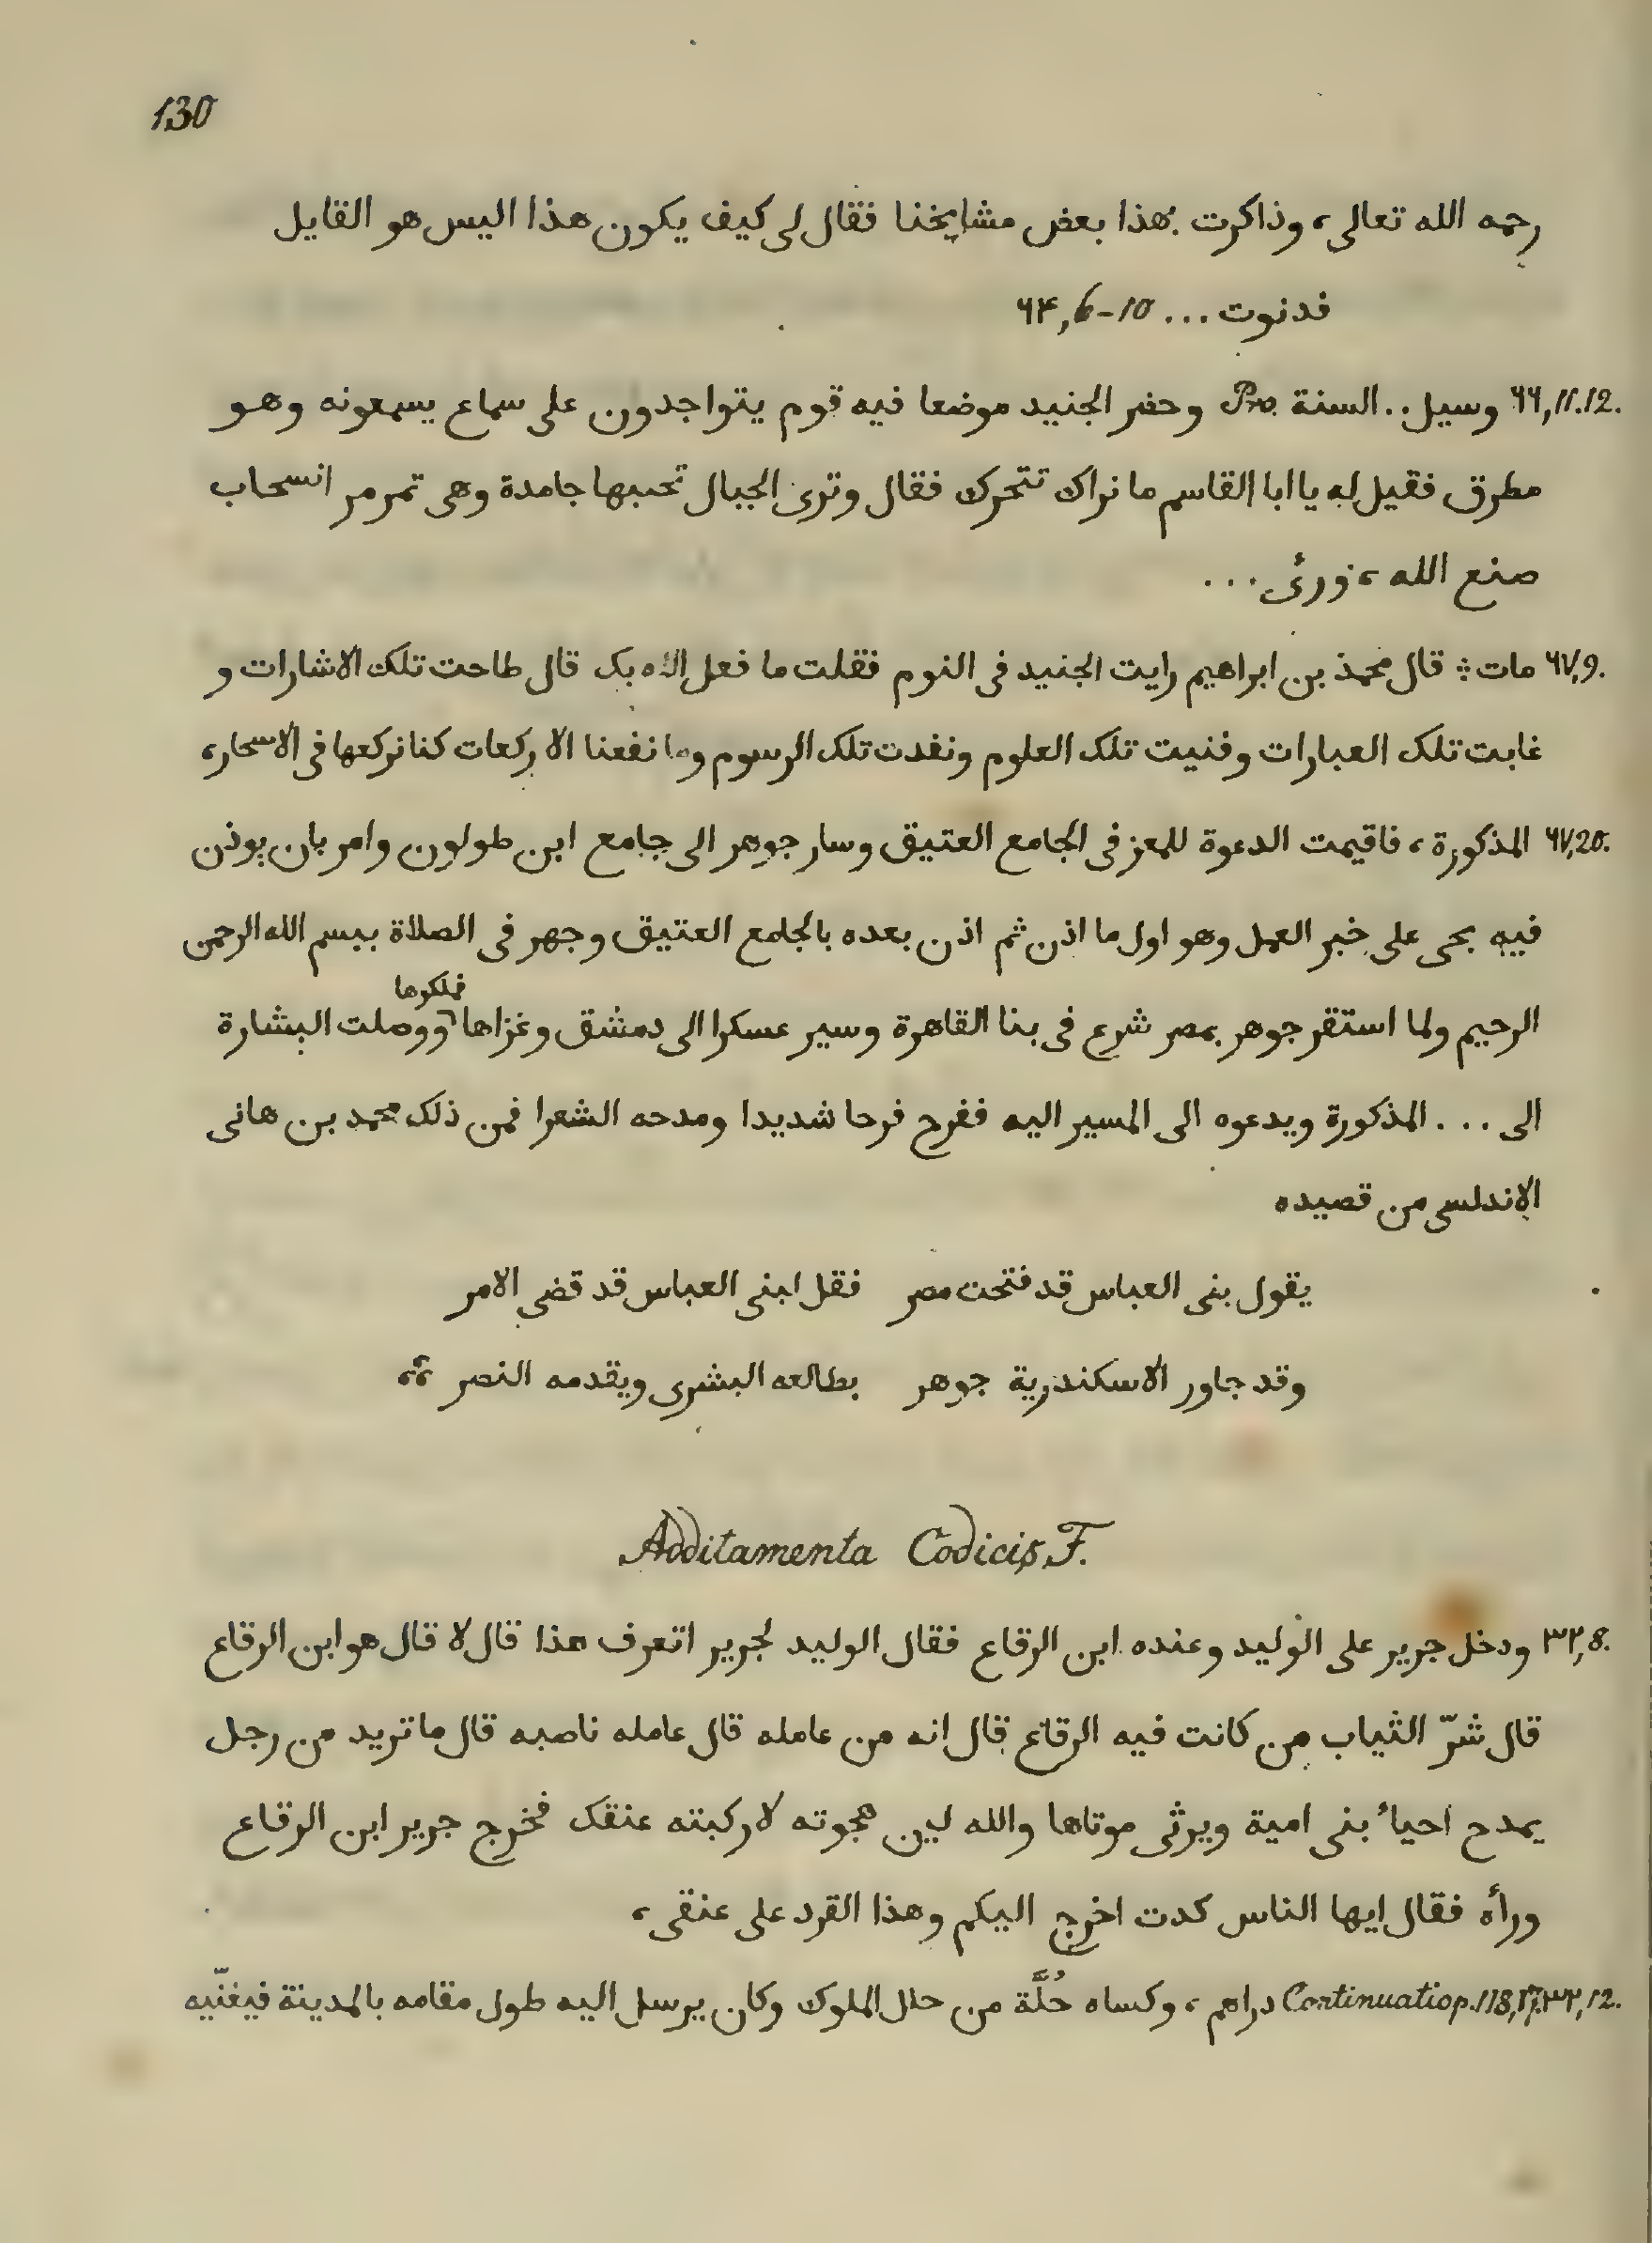 130
رحمه الله تعالى، وذاكرت بهذا بعض مشايخنا فقال لى كيف يكون هذا اليس هو القايل
فدنوت ... ٦٤,6-10
٦٦,11.12. وسيل .. السنة Pro. وحضر الجنيد موضعا فيه قوم يتواجدون على سماع يسمعونه وهو
مطرق فقيل له يا ابا القاسم ما نراك تتحرك فقال وترى الجبال تحسبها جامدة وهى تمر مر السحاب
صنع الله، ورئى ...
٦٧,9. مات ؞ قال محمد بن ابراهيم رايت الجنيد فى النوم فقلت ما فعل الله بك قال طاحت تلك الاشارات و
غابت تلك العبارات وفنيت تلك العلوم ونفدت تلك الرسوم وما نفعنا الا ركعات كنا نركعها فى الاسحار،
٦٧,20. المذكورة، فاقيمت الدعوة للمعز فى الجامع العتيق وسار جوهر الى جامع ابن طولون وامر بان يوذن
فيه بحى على خير العمل وهو اول ما اذن ثم اذن بعده بالجامع العتيق وجهر فى الصلاة ببسم الله الرحمن
فملكوها
الرحيم ولما استقر جوهر بمصر شرع فى بنا القاهرة وسير عسكرا الى دمشق وغزاها ووصلت البشارة
الى ... المذكورة ويدعوه الى المسير اليه ففرح فرحا شديدا ومدحه الشعرا فمن ذلك محمد بن هانى
الاندلسى من قصيده
يقول بنى العباس قد فتحت مصر فقل لبنى العباس قد قضى الامر
وقد جاور الاسكندرية جوهر بطالعه البشرى ويقدمه النصر
Additamenta Codicis F.
٣٢,8. ودخل جرير على الوليد وعنده ابن الرقاع فقال الوليد لجرير اتعرف هذا قال لا قال هو ابن الرقاع
قال شرّ الثياب من كانت فيه الرقاع قال انه من عامله قال عامله ناصبه قال ما تريد من رجل
يمدح احياء بنى امية ويرثى موتاها والله لين هجوته لاركبنه عنقك فخرج جرير ابن الرقاع
ورأه فقال ايها الناس كدت اخرج اليكم وهذا القرد على عنقى،
٣٢,12. Continuatio p.118, دراهم، وكساه حُلَّة من حلل الملوك وكان يرسل اليه طول مقامه بالمدينة فيغنّيه